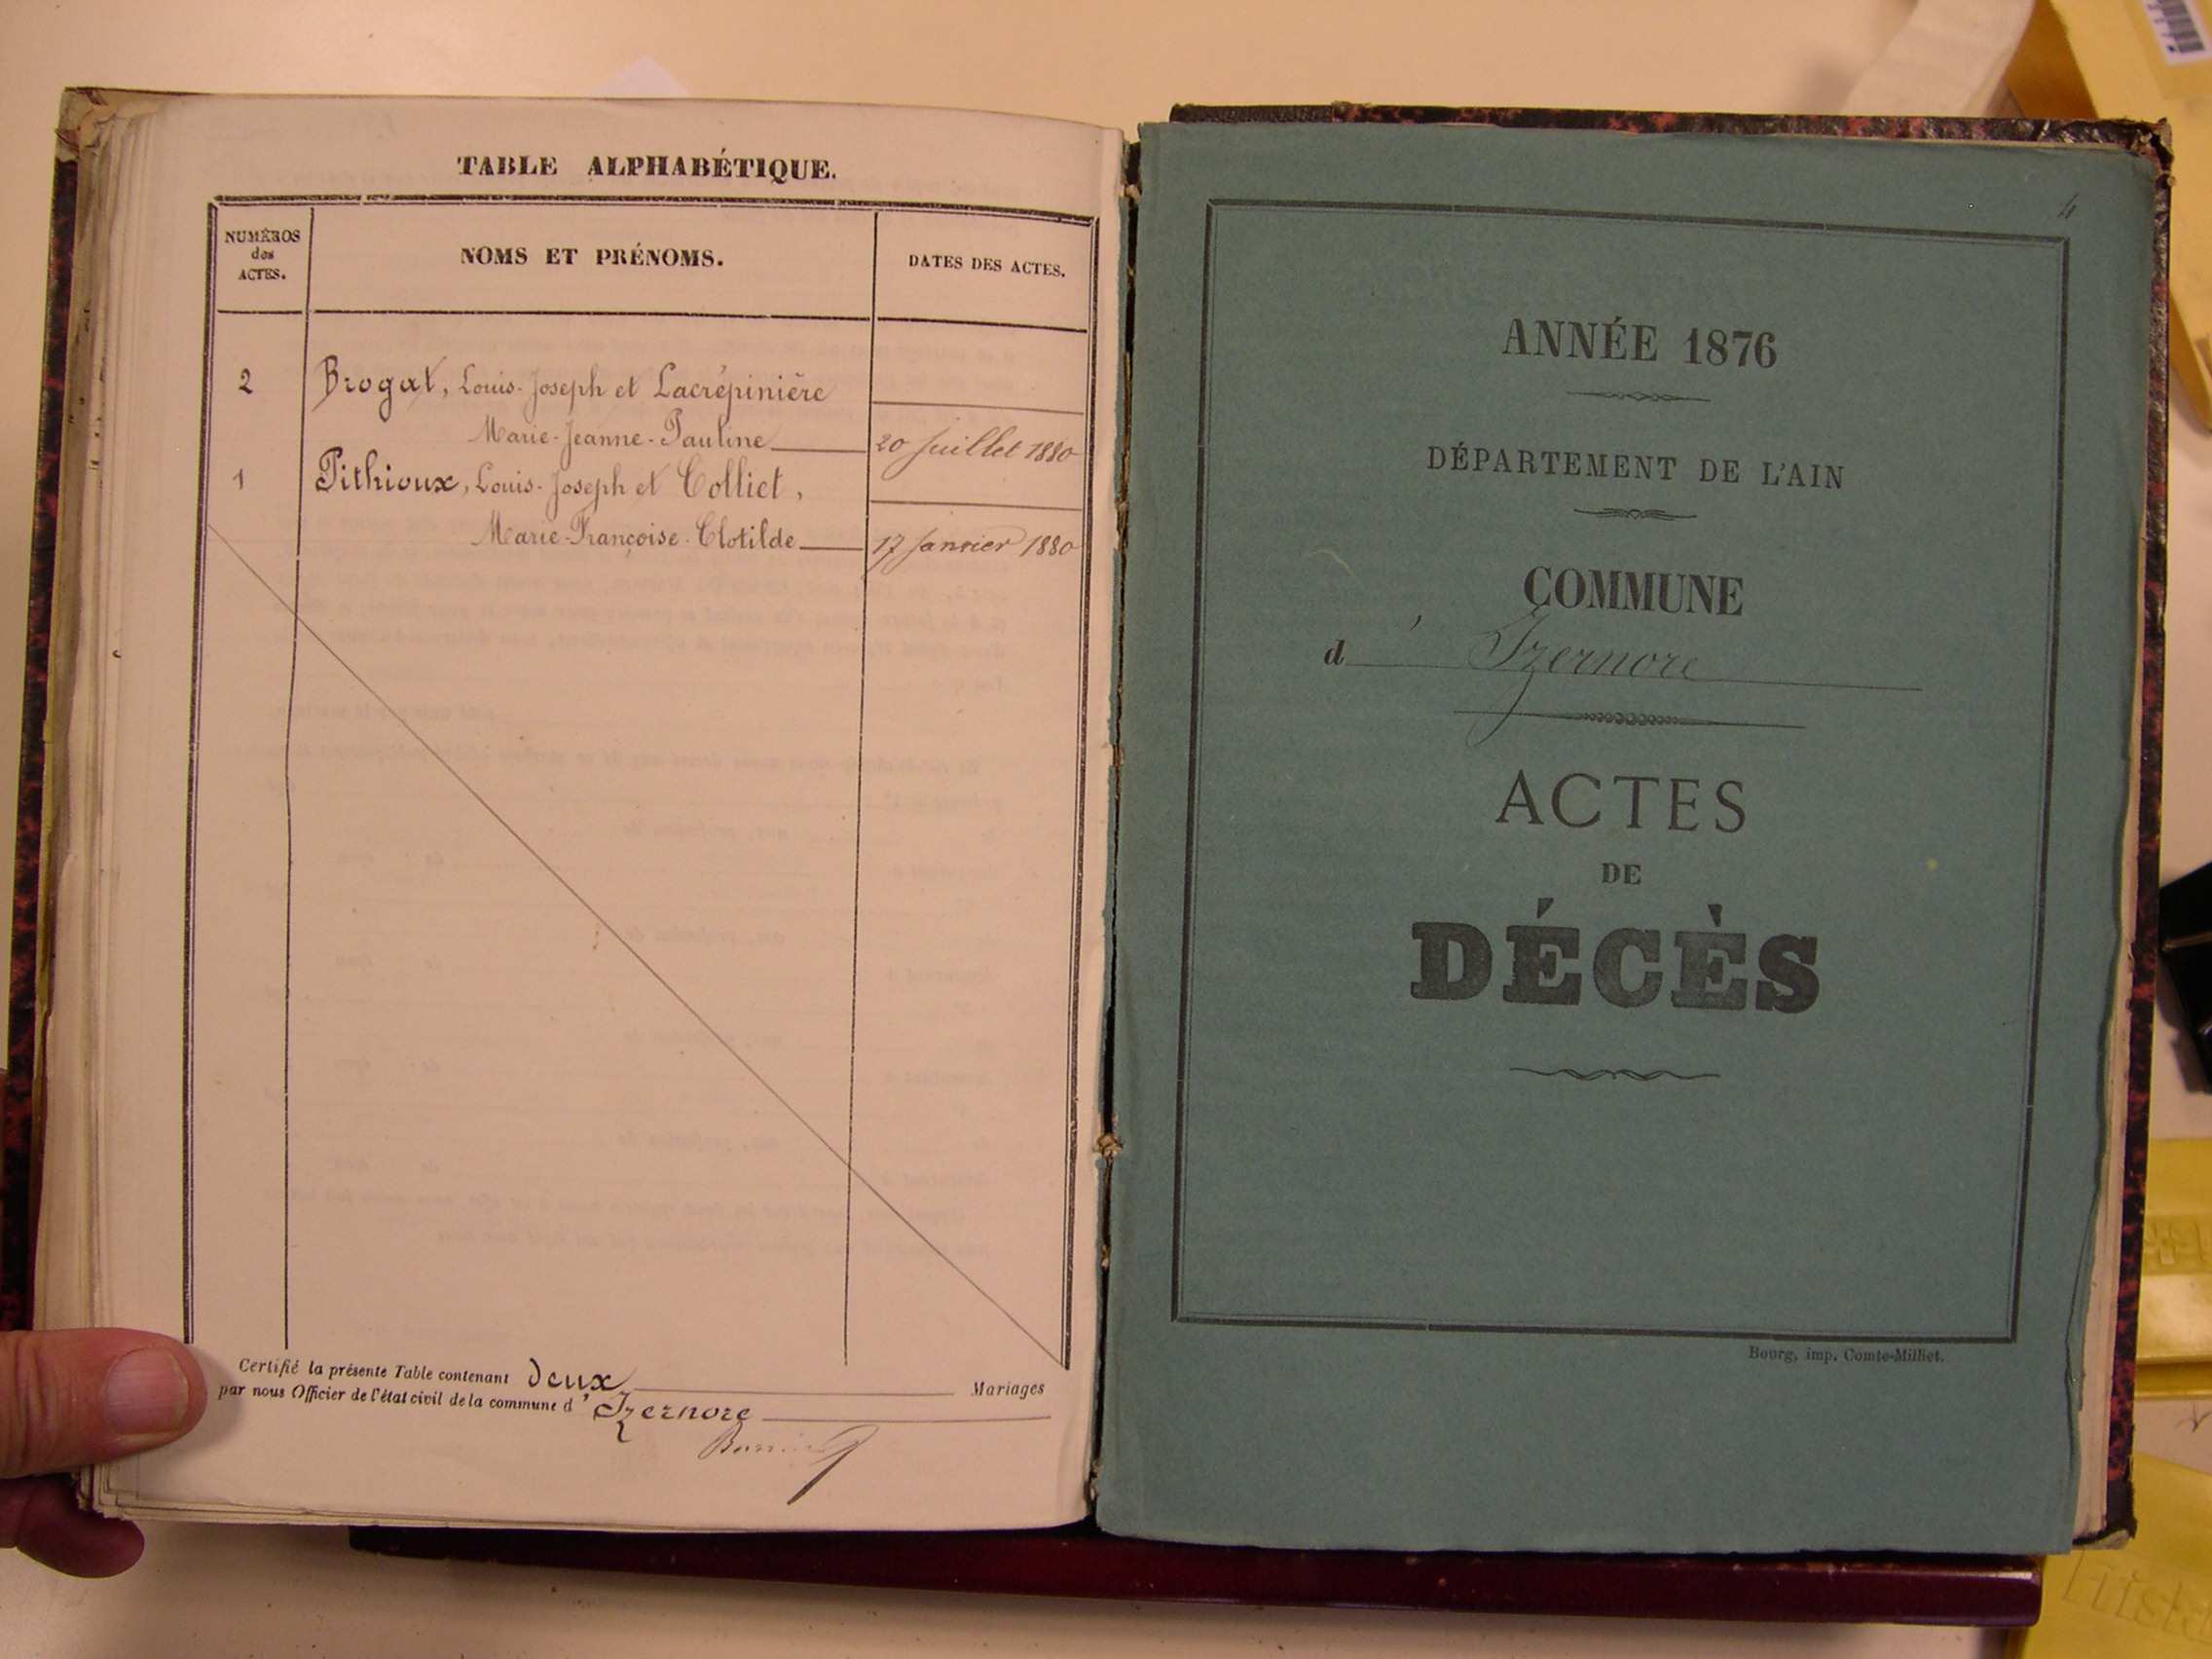 TABLE ALPHABÉTIQUE.
NUMÉROS
des
ACTES.
NOMS ET PRÉNOMS.
DATES DES ACTES.
2 Brogat, Louis-Joseph et Lacrépinière
Marie-Jeanne-Pauline 20 Juillet 1880
1 Pithioux, Louis-Joseph et Colliet,
Marie-Françoise-Clotilde 17 Janvier 1880
Certifié la présente Table contenant Deux Mariages
par nous Officier de l'état civil de la commune d'Izernore
4
ANNÉE 1876
DÉPARTEMENT DE L'AIN
COMMUNE
d'Izernore
ACTES
DE
DÉCÈS
Bourg, imp. Comte-Milliet.